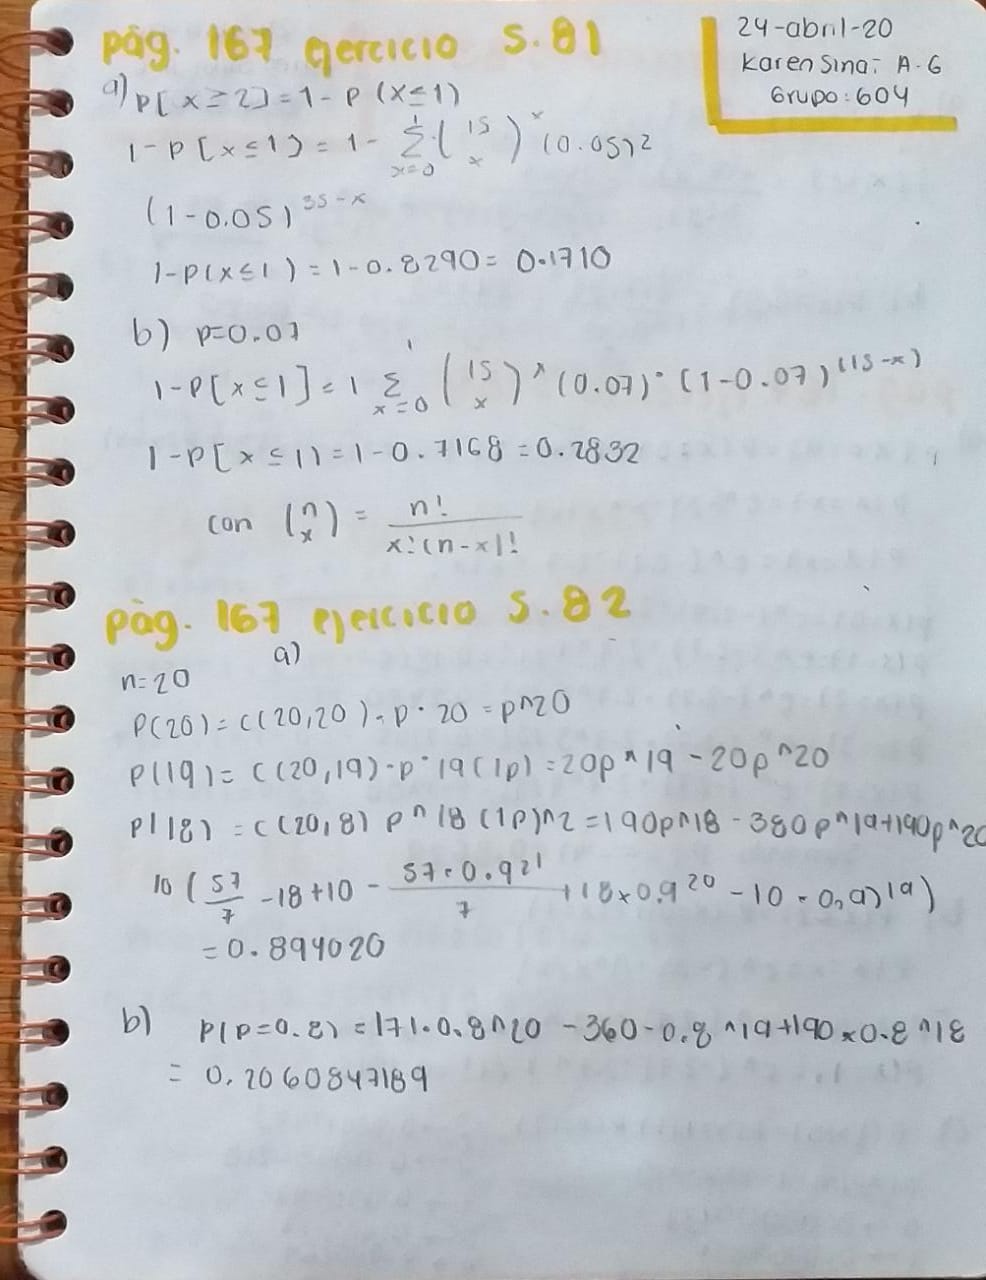 pág. 167 ejercicio 5.81
24-abril-20
Karen Sinai A.G
Grupo: 604
a) P[x ≥ 2] = 1 - P(x ≤ 1)
1 - P[x ≤ 1) = 1 - Σ x=0 1 (15 x) x (0.05)2
(1-0.05) 35-x
1-P(x≤1) = 1-0.8290 = 0.1710
b) p=0.07
1-P[x≤1] = 1 Σ x=0 1 (15 x) x (0.07). (1-0.07)(15-x)
1-P[x≤1) = 1-0.7168 = 0.2832
con (n x) = n! / x!(n-x)!
pàg. 167 ejercicio 5.82
a)
n=20
P(20) = C(20,20)-p. 20 = p^20
P(19) = C(20,19).p.(p1)19(1p) = 20p^19 - 20p^20
P(18) = C(20,18) p^18 (1p)^2 = 190p^18 - 380p^19+190p^20
10 (57/7 -18+10 - 57.0.921/7 +18x0.9 20 -10.0,9(19)
= 0.894020
b) P(p=0.8) = 171.0.8^20 - 360-0.8^19+190x0.8^18
= 0.2060847189